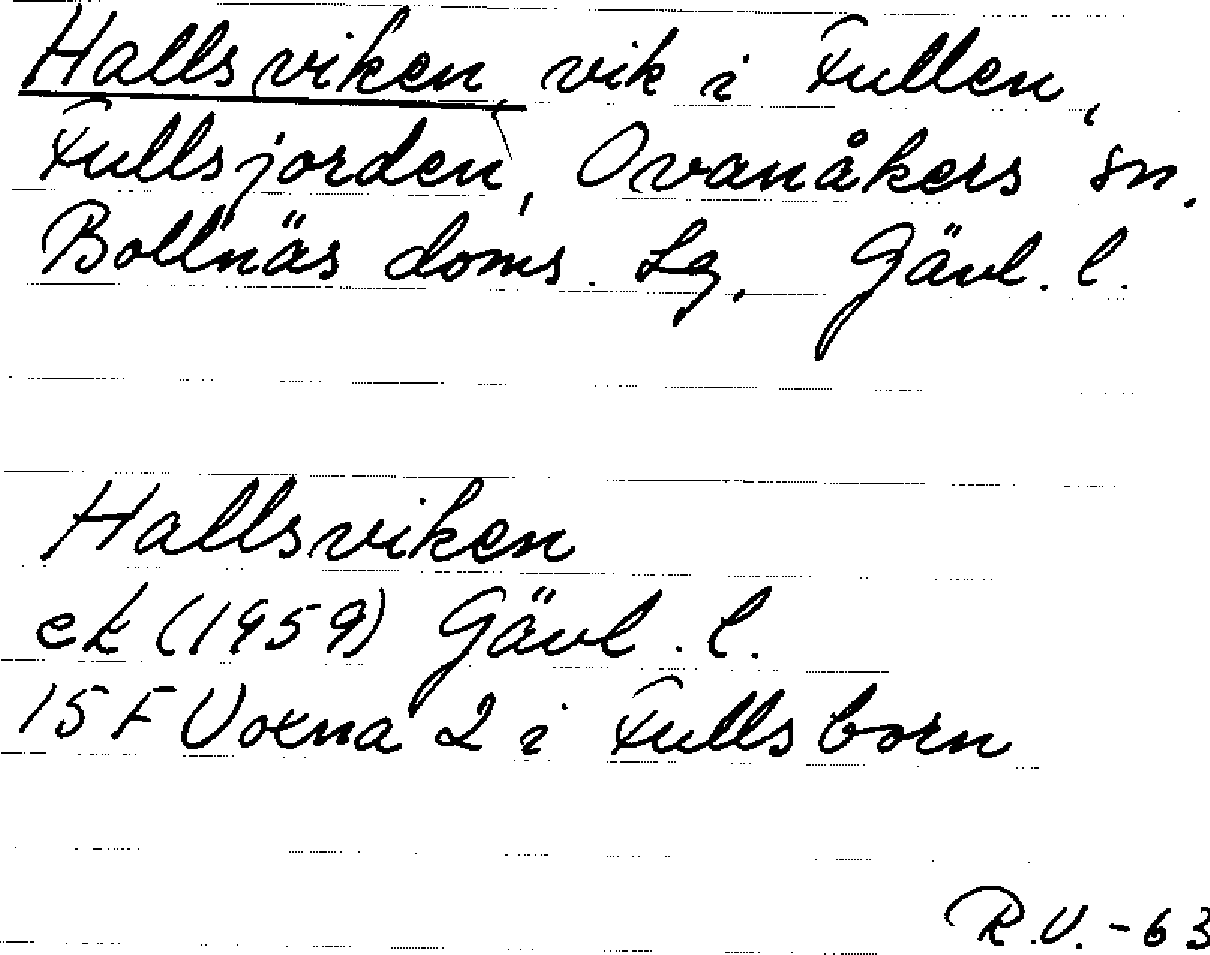 Hallsviken, vik i Fullen,
Fullsjorden, Ovanåkers sn.
Bollnäs doms. Lg. Gävl. l.
Hallsviken
ek (1959) Gävl. l.
15 F Voxna 2 i Fullsborn
R.V. -63